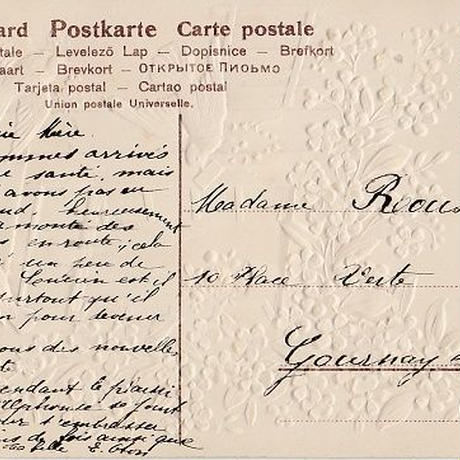 ard Postkarte Carte postale
tale – Levelező Lap – Dopisnice – Brefkort
aart – Brevkort – ОТКРЫТОЕ ПИСЬМО
Tarjeta postal – Cartao postal
Union postale Universelle.
Mère.
ommes arrivés
e santé, mais
avons pas eu
heureusement
monté des
en route; cela
un peu de
est il
surtout qu'il
n pour devenir
ous des nouvelles,
endant le plaisir
Alphonse se joint
r t'embrasser
s de fois ainsi que
E.
Madame
10 Place Verte
Gournay